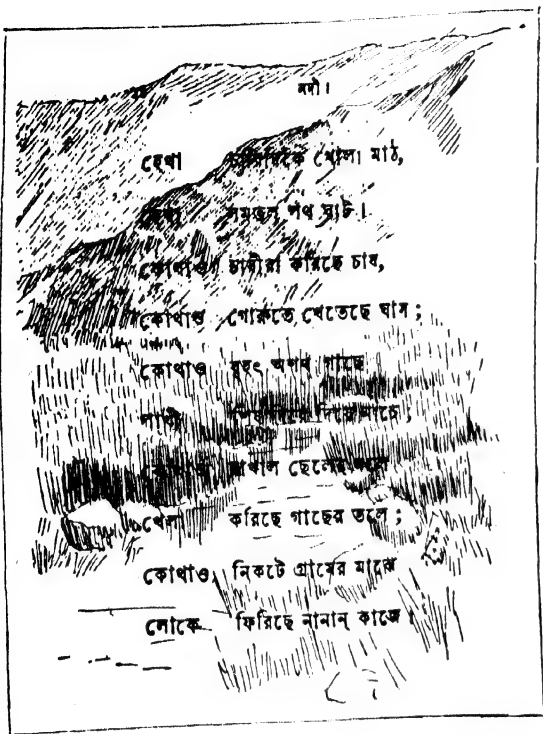 নদী।
হেথা চারিদিকে খোলা মাঠ,
হেথা সমতল পথ ঘাট।
কোথাও চাষীরা করিছে চাষ,
কোথাও গোরুতে খেতেছে ঘাস;
কোথাও বৃহৎ অশথ গাছে
পাখী শিষ দিয়ে দিয়ে নাচে;
কোথাও রাখাল ছেলের দলে
খেলা করিছে গাছের তলে;
কোথাও নিকটে গ্রামের মাঝে
লোকে ফিরিছে নানান্ কাজে।